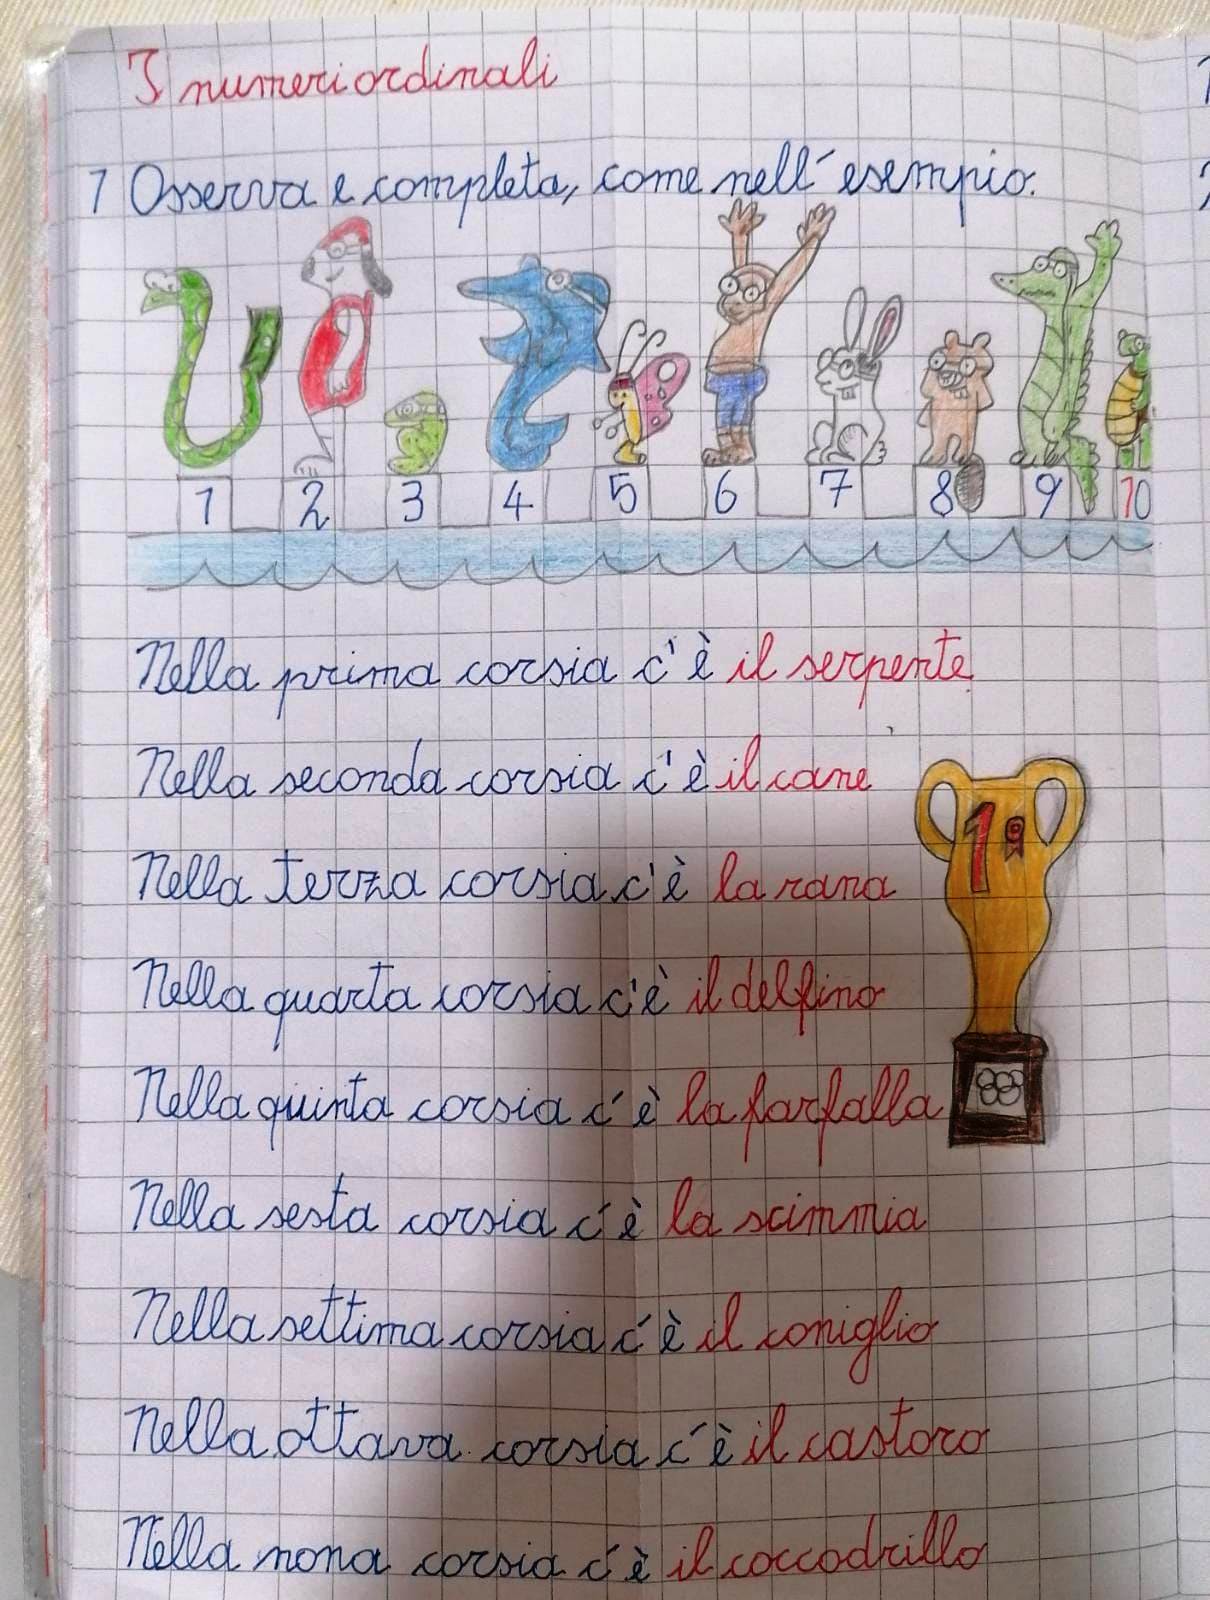 I numeri ordinali
1 Osserva e completa, come nell'esempio.
1 2 3 4 5 6 7 8 9 10
Nella prima corsia c'è il serpente
Nella seconda corsia c'è il cane
1°
Nella terza corsia c'è la rana
Nella quarta corsia c'è il delfino
Nella quinta corsia c'è la farfalla
Nella sesta corsia c'è la scimmia
Nella settima corsia c'è il coniglio
Nella ottava corsia c'è il castoro
Nella nona corsia c'è il coccodrillo